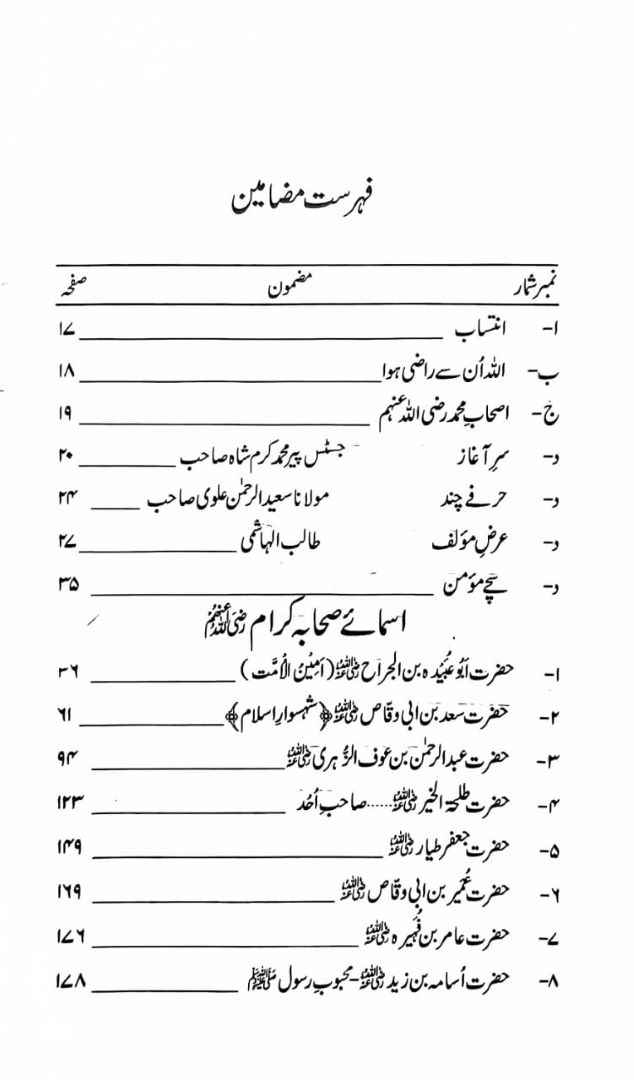 فہرست مضامین
نمبر شمار مضمون صفحہ
ا- انتساب ۱۷
ب- اللہ اُن سے راضی ہوا ۱۸
ج- اصحابِ محمد رضی اللہ عنہم ۱۹
د- سرِ آغاز جسٹس پیر محمد کرم شاہ صاحب ۲۰
د- حرفے چند مولانا سعید الرحمٰن علوی صاحب ۲۴
د- عرضِ مؤلف طالب الہاشمی ۲۷
د- سچے مؤمن ۳۵
اسمائے صحابہ کرام رضی اللہ عنہم
۱- حضرت ابو عُبیدہ بن الجراح رضی اللہ عنہ (اَمِیْنُ الْاُمَّت) ۳۶
۲- حضرت سعد بن ابی وقاص رضی اللہ عنہ ﴿شہسوارِ اسلام﴾ ۶۱
۳- حضرت عبدالرحمٰن بن عوف الزُّہری رضی اللہ عنہ ۹۴
۴- حضرت طلحۃ الخیر رضی اللہ عنہ ...... صاحبِ اُحُد ۱۲۳
۵- حضرت جعفر طیار رضی اللہ عنہ ۱۴۹
۶- حضرت عُمیر بن ابی وقاص رضی اللہ عنہ ۱۶۹
۷- حضرت عامر بن فُہیرہ رضی اللہ عنہ ۱۷۶
۸- حضرت اُسامہ بن زید رضی اللہ عنہ - محبوبِ رسول ﷺ ۱۷۸